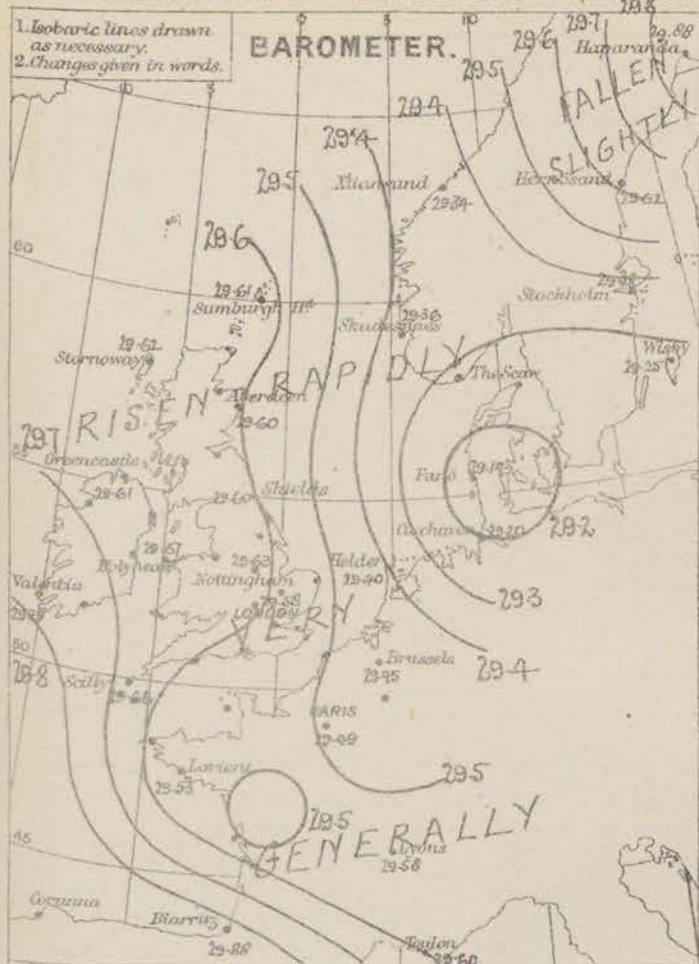 1. Isobaric lines drawn
as necessary.
2. Changes given in words.
BAROMETER.
5
10
29.6
29.7
Haparanda
29.88
10
5
0
29.5
FALLEN
29.4
SLIGHTLY
29.4
Xtiansund
29.34
Hernosand
29.62
29.5
29.6
60
29.61
Sumburgh Hd
Stockholm
29.62
Stornoway
29.36
Skudesnaes
Wisby
29.25
The Scaw
RISEN RAPIDLY
Aberdeen
29.60
29.7
55
Greencastle
29.61
29.60
Shields
Fanö
Cuxhaven
29.20
29.2
29.67
Holyhead
29.63
Nottingham
Helder
29.40
29.3
Valentia
29.58
LONDON
VERY
50
29.8
Scilly
29.68
Brussels
29.45
29.4
PARIS
29.49
Lorient
29.53
29.5
29.5
GENERALLY
45
Lyons
29.58
Corunna
Biarritz
29.88
Toulon
29.60